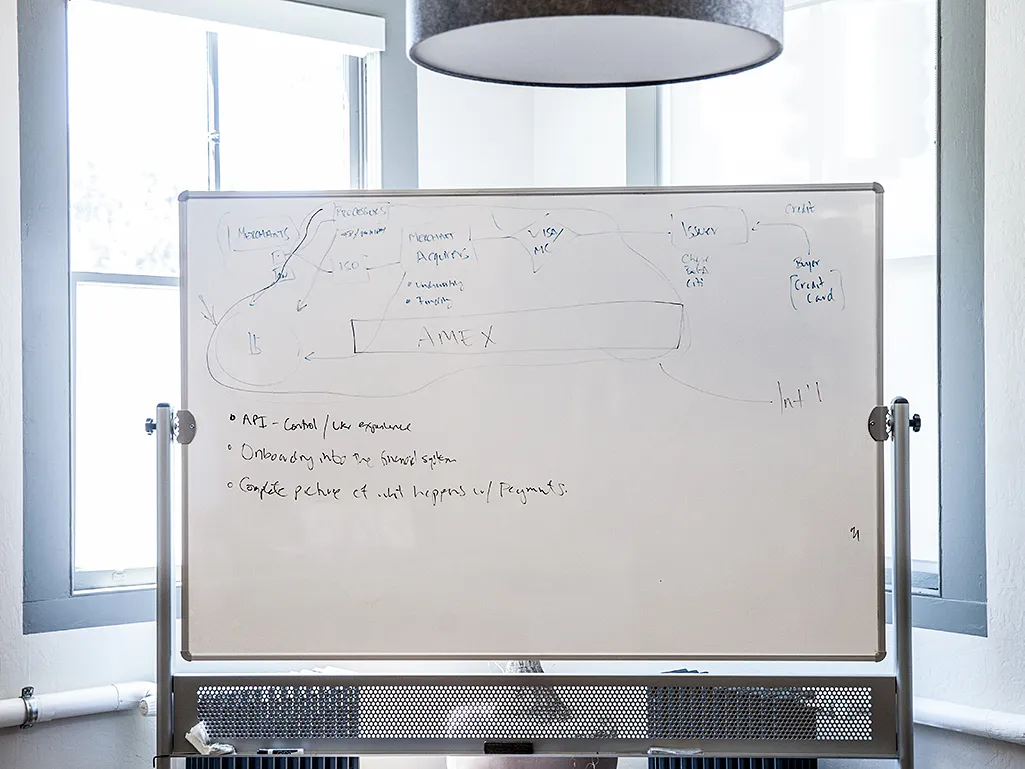 PROCESSORS
MERCHANTS
ISO
MERCHANT
ACQUIRERS
• Underwriting
• Funding
VISA/
MC
ISSUER
Chase
BofA
Citi
Credit
Buyer
Credit
Card
AMEX
Int'l
• API - Control / User experience
• Onboarding into the financial system
• Complete picture of what happens w/ Payments.